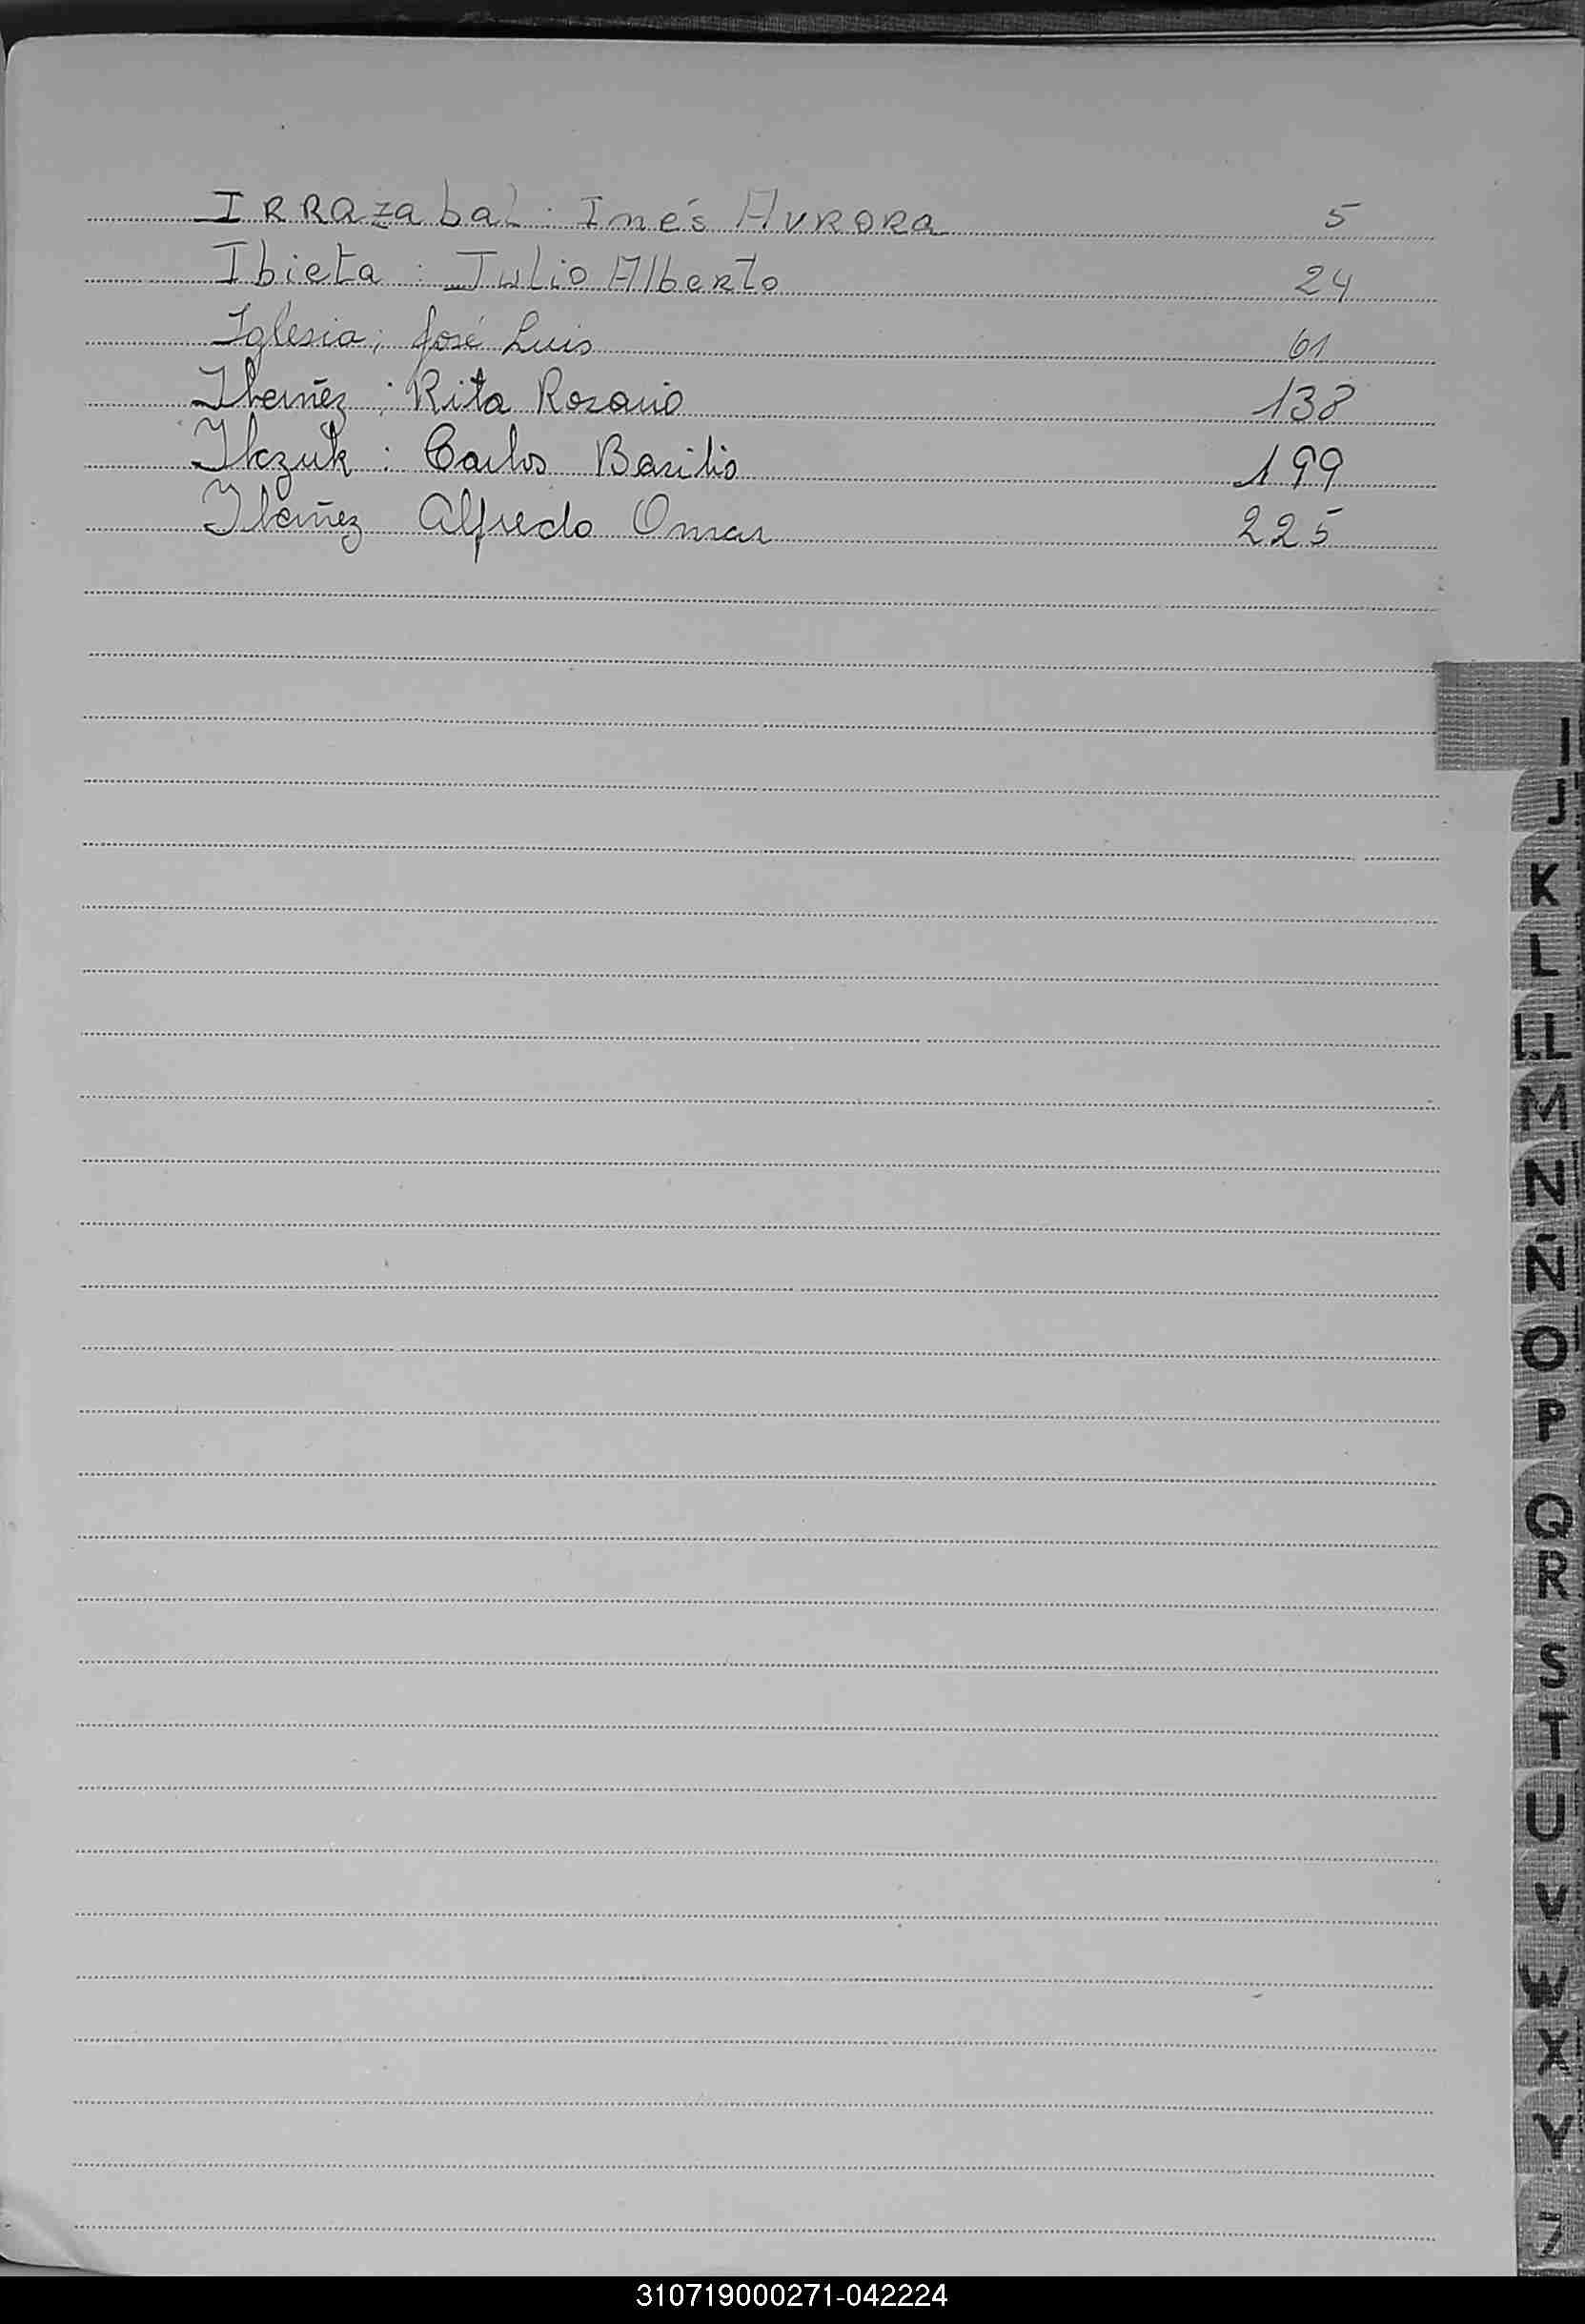 IRRAzabaL: Inés AURORA 5
Ibieta: Julio Alberto 24
Iglesia; José Luis 61
Ibañez: Rita Rosario 138
Ikczuk: Carlos Basilio 199
Ibañez Alfredo Omar 225
I
J
K
L
LL
M
N
Ñ
O
P
Q
R
S
T
U
V
W
X
Y
Z
310719000271-042224